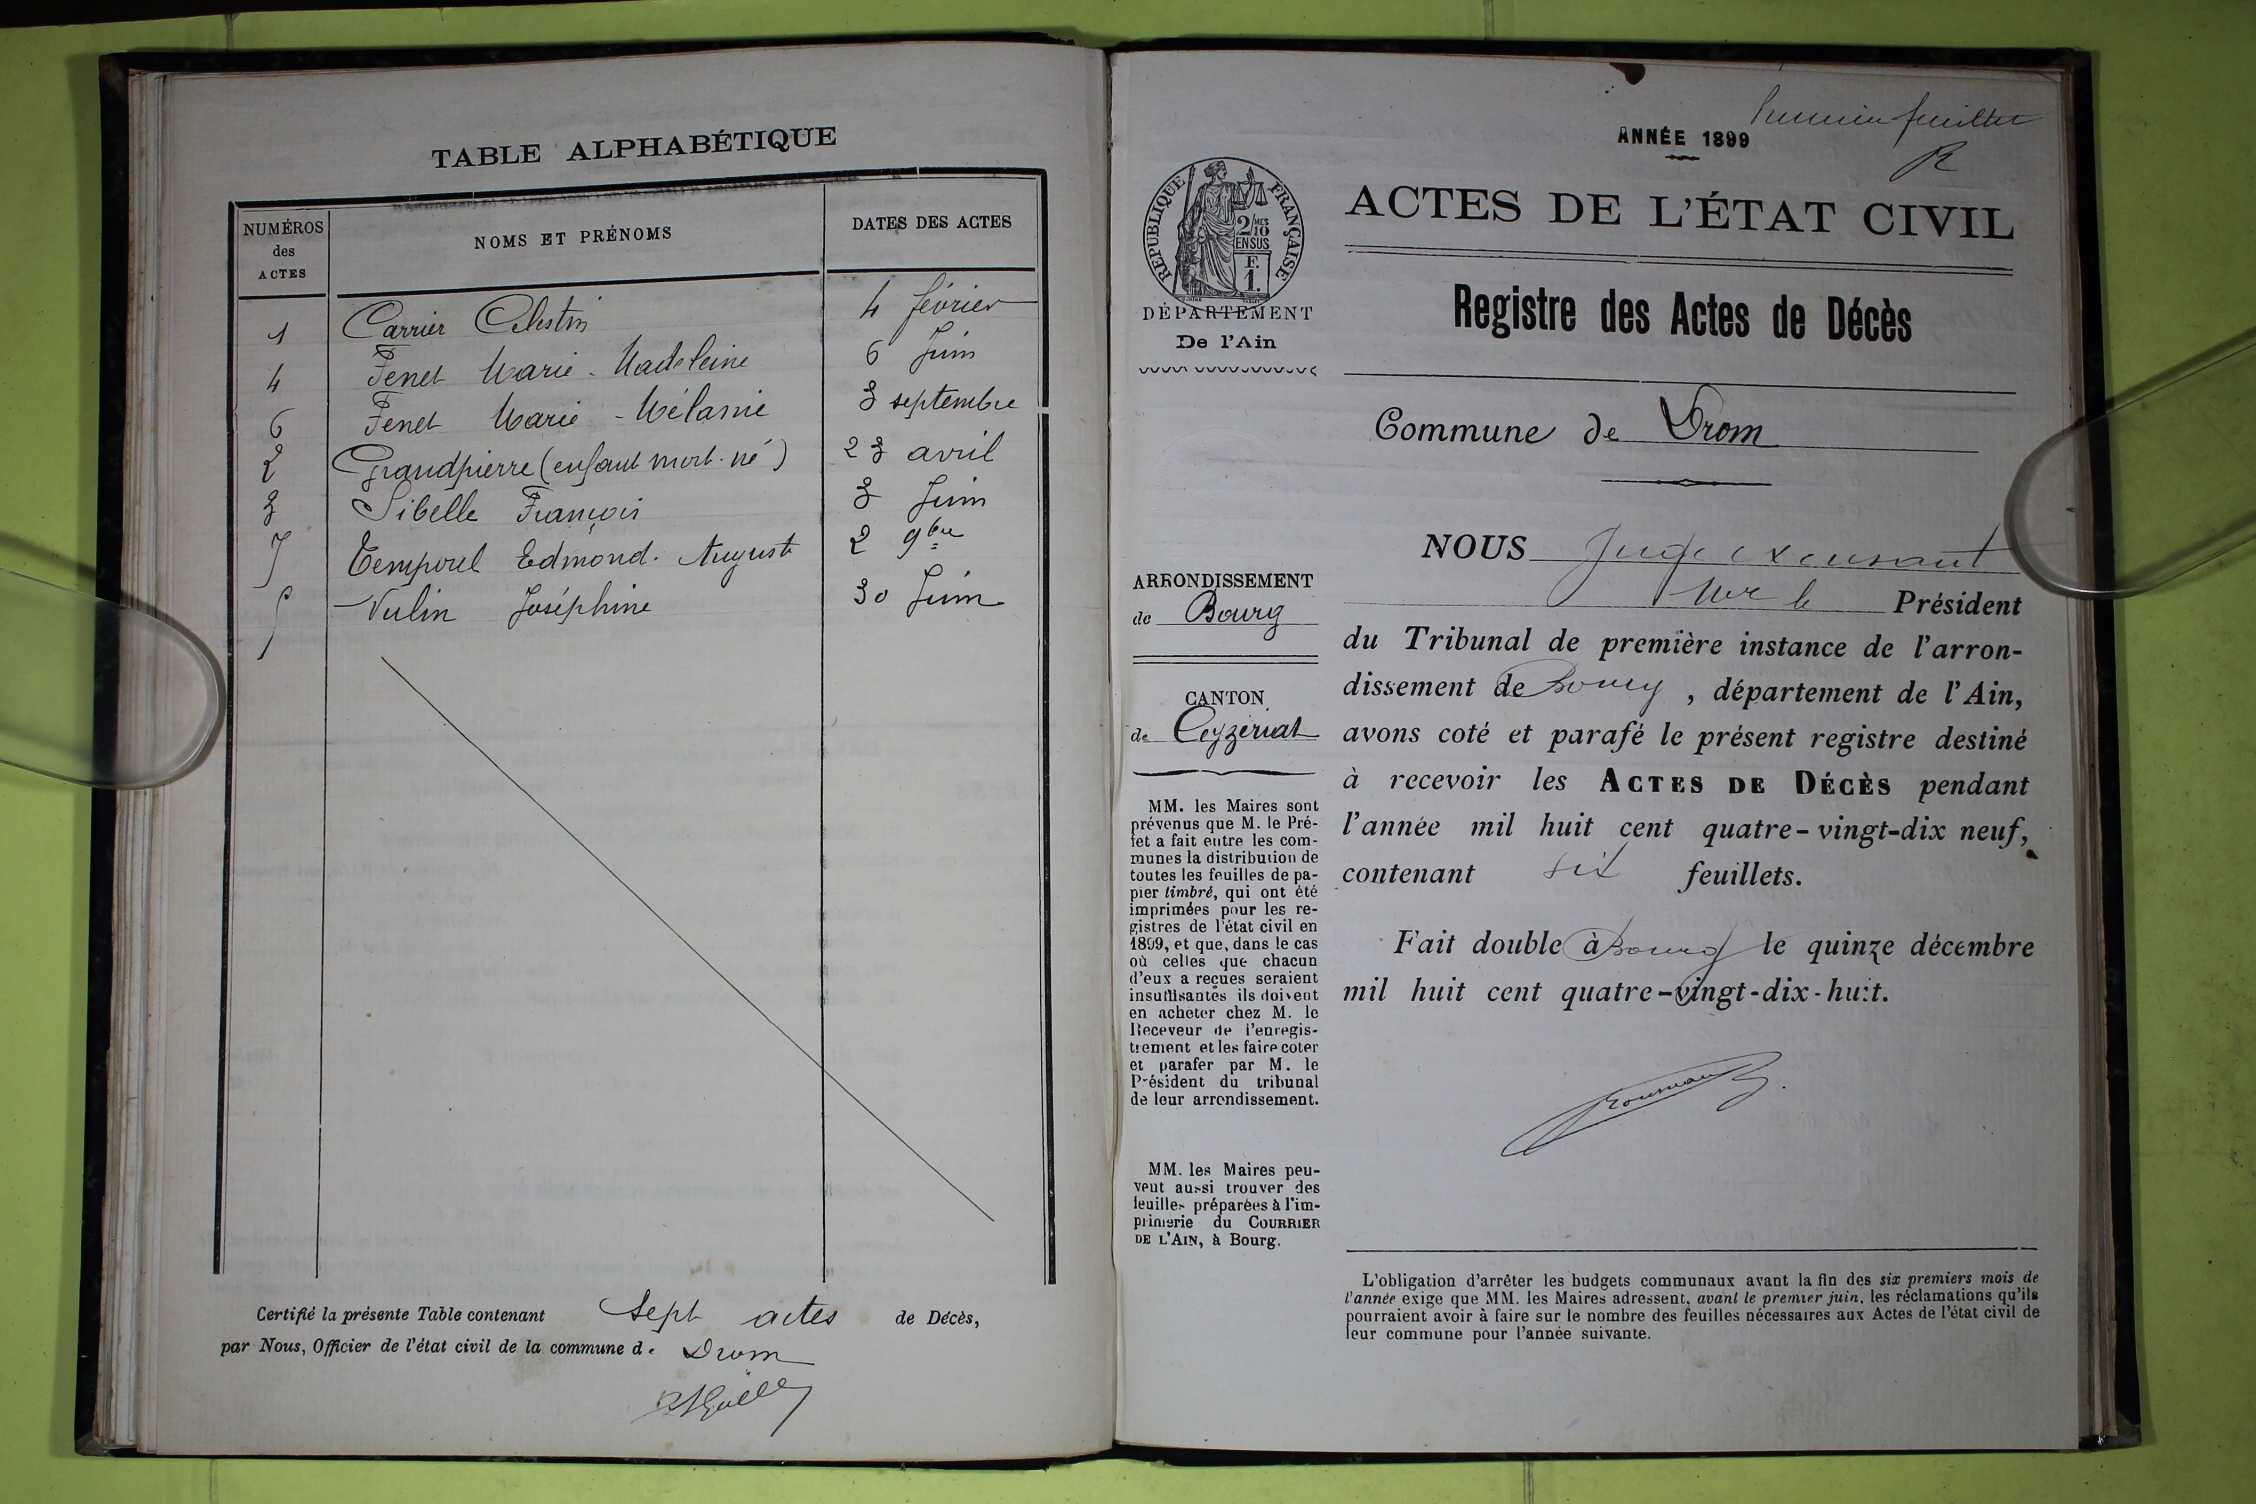 TABLE ALPHABÉTIQUE
NUMÉROS des ACTES
NOMS ET PRÉNOMS
DATES DES ACTES
1 Carrier Célestin 4 février
4 Fenet Marie-Madeleine 6 Juin
6 Fenet Marie-Mélanie 3 septembre
2 Grandpierre (enfant mort-né) 23 avril
3 Sibelle François 3 Juin
7 Temporel Edmond-Auguste 2 9bre
5 Vulin Joséphine 30 Juin
Certifié la présente Table contenant sept actes de Décès,
par Nous, Officier de l'état civil de la commune de Drom
Premier feuillet
ANNÉE 1899
R
ACTES DE L'ÉTAT CIVIL
Registre des Actes de Décès
Commune de Drom
RÉPUBLIQUE FRANÇAISE
2/10 MES
EN SUS
F.
1.
DÉPARTEMENT
De l'Ain
ARRONDISSEMENT
de Bourg
CANTON
de Ceyzériat
MM. les Maires sont
prévenus que M. le Pré-
fet a fait entre les com-
munes la distribution de
toutes les feuilles de pa-
pier timbré, qui ont été
imprimées pour les re-
gistres de l'état civil en
1899, et que, dans le cas
où celles que chacun
d'eux a reçues seraient
insuffisantes ils doivent
en acheter chez M. le
Receveur de l'enregis-
trement et les faire coter
et parafer par M. le
Président du tribunal
de leur arrondissement.
MM. les Maires peu-
vent aussi trouver des
feuilles préparées à l'im-
primerie du COURRIER
DE L'AIN, à Bourg.
NOUS Juge
le Président
du Tribunal de première instance de l'arron-
dissement de Bourg, département de l'Ain,
avons coté et parafé le présent registre destiné
à recevoir les ACTES DE DÉCÈS pendant
l'année mil huit cent quatre-vingt-dix neuf,
contenant six feuillets.
Fait double à Bourg le quinze décembre
mil huit cent quatre-vingt-dix-huit.
L'obligation d'arrêter les budgets communaux avant la fin des six premiers mois de
l'année exige que MM. les Maires adressent, avant le premier juin, les réclamations qu'ils
pourraient avoir à faire sur le nombre des feuilles nécessaires aux Actes de l'état civil de
leur commune pour l'année suivante.